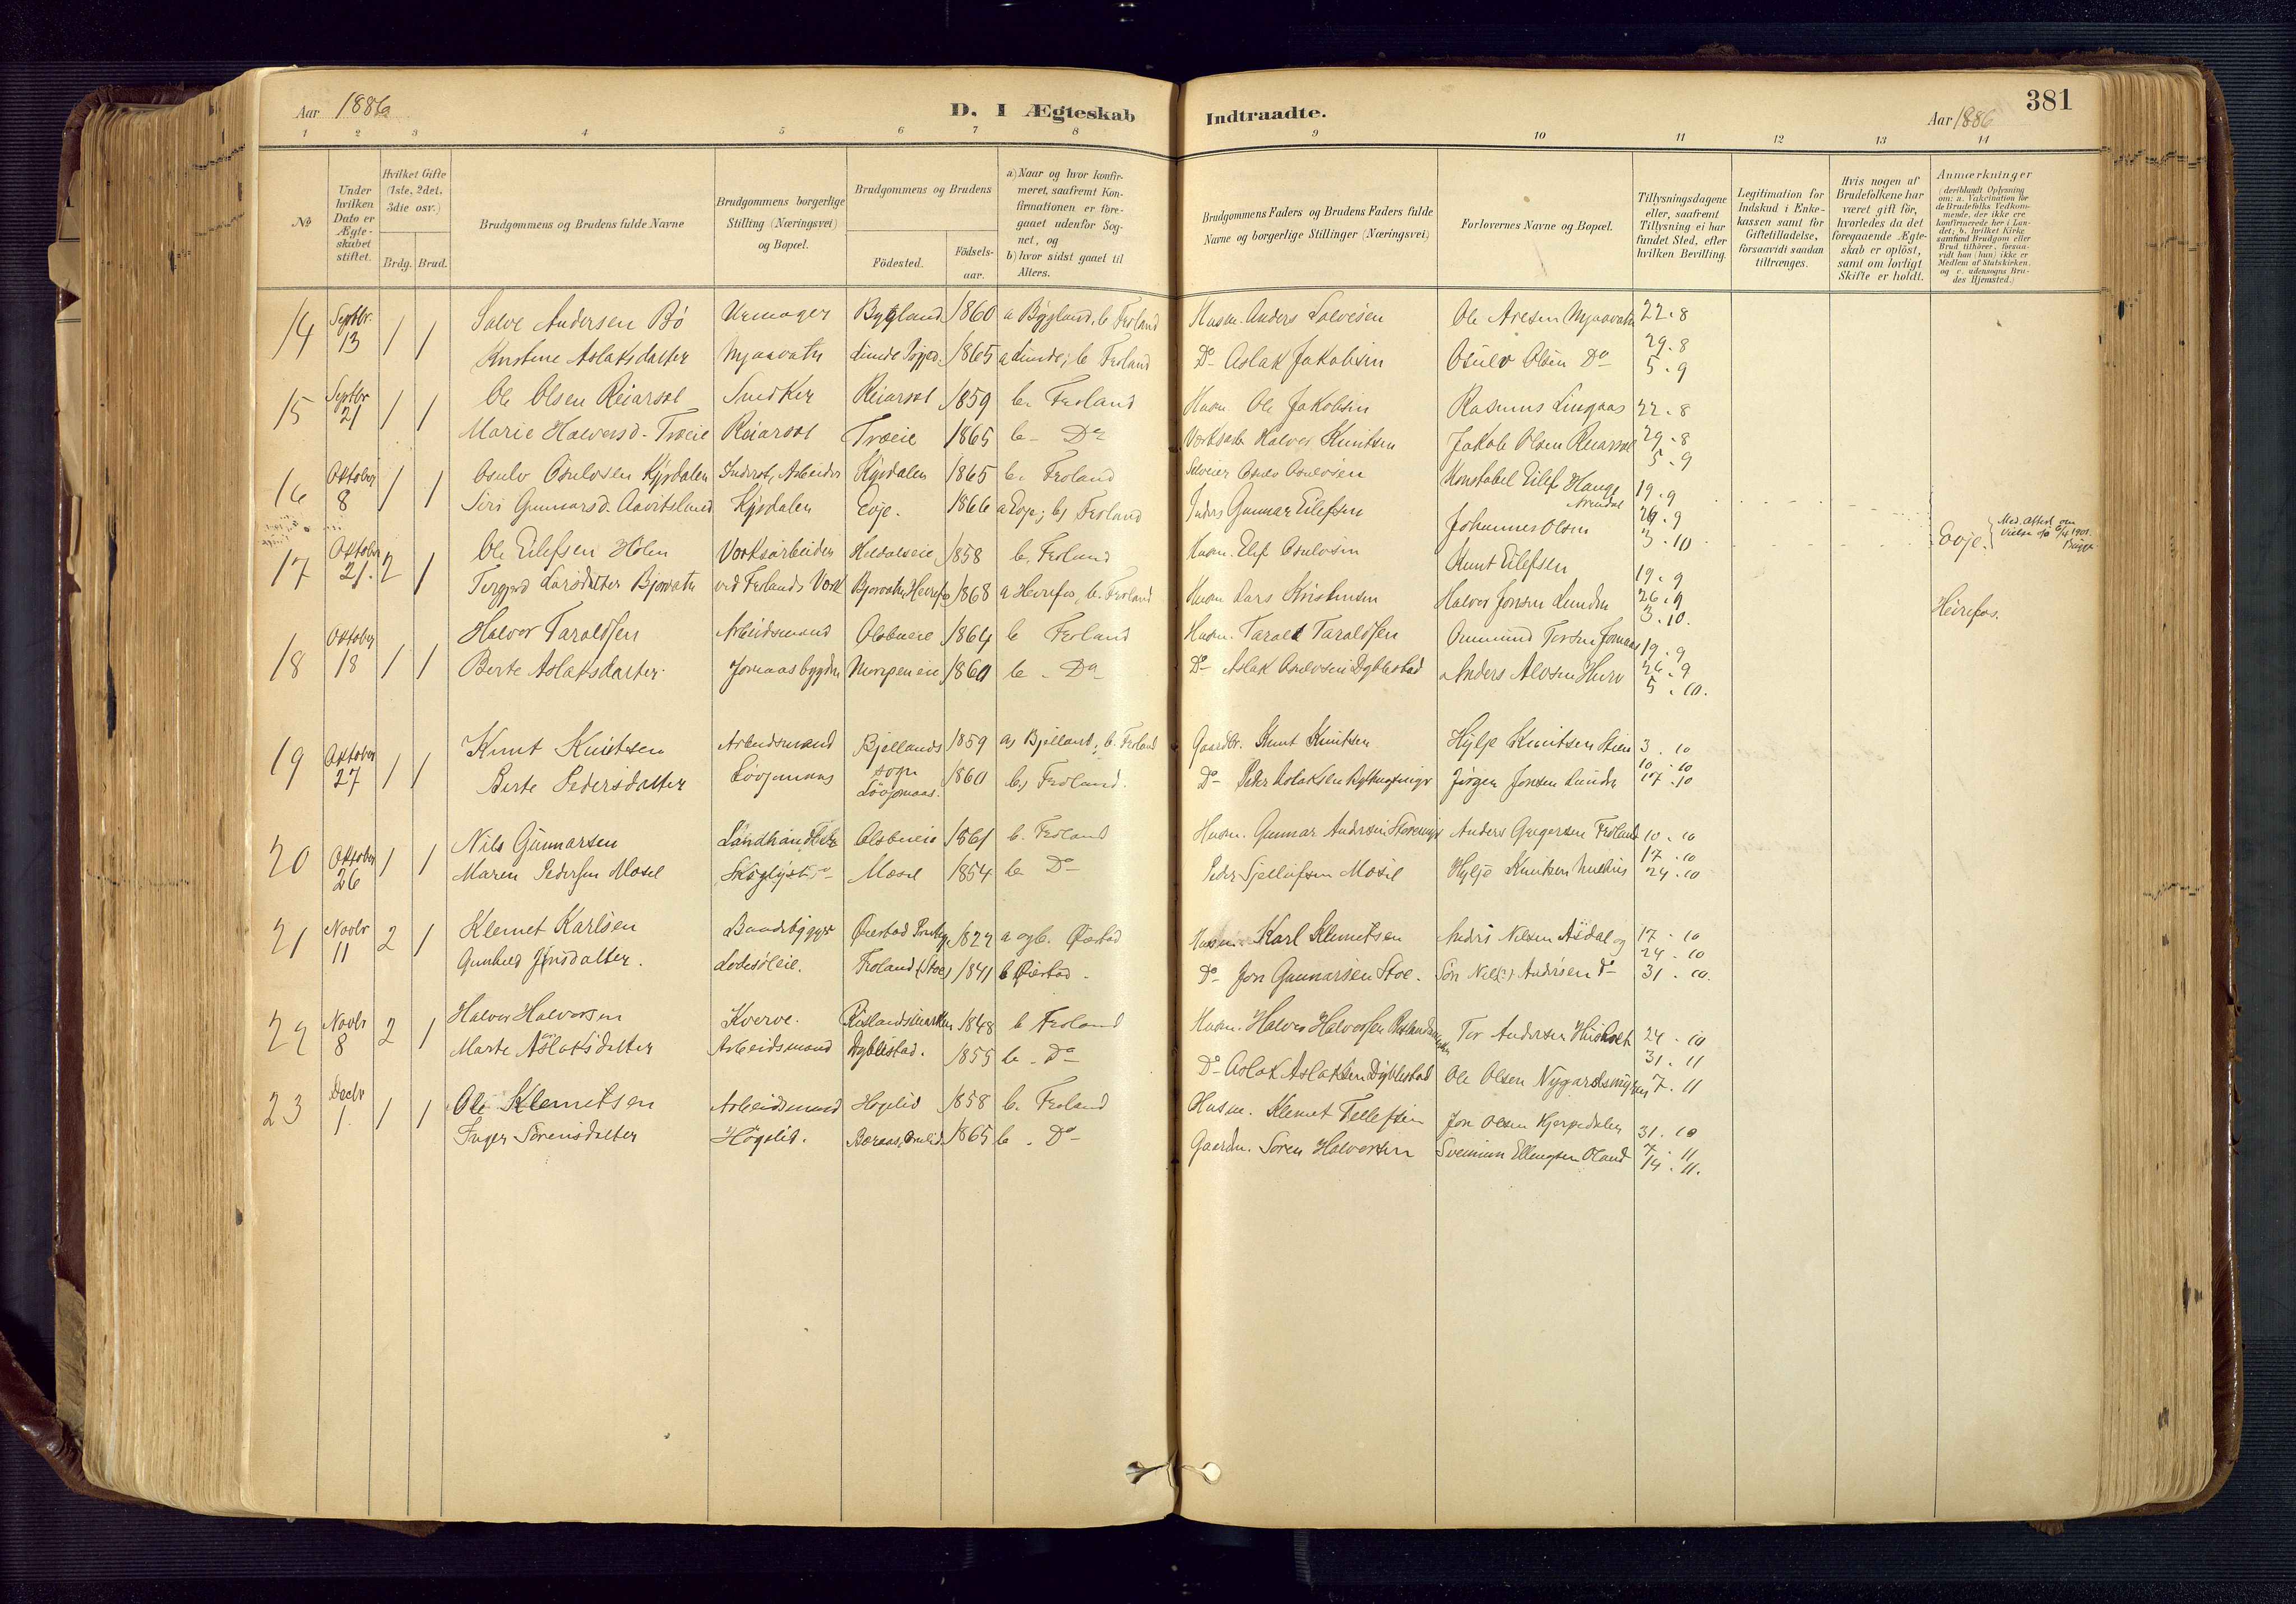 Aar 1886
D. I Ægteskab
Indtraadte.
Aar 1886
381
1 2 3 4 5 6 7 8 9 10 11 12 13 14
№
Under hvilken Dato er Ægteskabet stiftet.
Hvilket Gifte (1ste, 2det, 3die osv.)
Brdg. Brud.
Brudgommens og Brudens fulde Navne
Brudgommens borgerlige Stilling (Næringsvei) og Bopæl.
Brudgommens og Brudens
Födested.
Födselsaar.
a) Naar og hvor konfirmeret, saafremt Konfirmationen er foregaaet udenfor Sognet, og
b) hvor sidst gaaet til Alters.
Brudgommens Faders og Brudens Faders fulde Navne og borgerlige Stillinger (Næringsvei)
Forlovernes Navne og Bopæl.
Tillysningsdagene eller, saafremt Tillysning ei har fundet Sted, efter hvilken Bevilling.
Legitimation for Indskud i Enkekassen samt for Giftetilladelse, forsaavidt saadan tiltrænges.
Hvis nogen af Brudefolkene har været gift för, hvorledes da det foregaaende Ægteskab er oplöst, samt om lovligt Skifte er holdt.
Anmærkninger
(deriblandt Oplysning om: a. Vakcination for de Brudefolks Vedkommende, der ikke ere konfirmerede her i Landet; b. hvilket Kirkesamfund Brudgom eller Brud tilhörer, forsaavidt han (hun) ikke er Medlem af Statskirken, og c. udensogns Brudes Hjemsted.)
14 Septbr. 13 1 1 Salve Andersen Bö Urmager Bygland 1860 a Bygland, b. Froland Husm. Anders Salvesen Ole Aresen Mjaavatn 22. 8
Kristine Aslaksdatter Mjaavatn 1865 a Linde; b Froland Do Aslak Jakobsen Osulv Olsen Do 29. 8
5. 9
15 Septbr 21 1 1 Ole Olsen Reiarsøl Snedker Reiarsøl 1859 b. Froland Husm Ole Jakobsen Rasmus Lingaas 22. 8
Marie Halvorsd. Træie Reiarsøl Træie 1865 b. Do Halvor Knutsen Jakob Olsen Reiarsøl 29. 8
5. 9
16 Oktober 8 1 1 Osulv Osulvsen Kjysdalen Inderst, Arbeider Kysdalen 1865 b. Froland Selveier Osulv Osulvsen Konstabel Eilef Hauge Arendal 19. 9
Siri Gunnarsd. Aavitsland Kysdalen Evje. 1866 a Evje; b) Froland Inders Gunnar Eilefsen Johannes Olsen 26. 9
3. 10
Evje.
Med. Attest om Vielse 1901. Bugge
17 Oktober 21. 2 1 Ole Eilefsen Holen Verksarbeider 1858 b. Froland Husm. Elef Osulvsen Knut Eilefsen 19. 9
Torgjerd Larsdatter Bjorvatn ved Frolands Verk Bjorvatn, Heirefos 1868 a Heirefos, b. Froland Husm Lars Kristensen Halvor Jonsen Lunden 26. 9
3. 10.
Heirefos.
18 Oktober 18 1 1 Halvor Taraldsen Arbeidsmand Olsbueie 1864 b Froland Husm. Tarald Taraldsen Ommund Tersen Jomaas 19. 9
Berte Aslaksdatter. Jomaasbygden 1860 b. Do Do Aslak Osulvsen Dyblestad Anders Alvsen Hurv 26. 9
5. 10.
19 Oktober 27 1 1 Knut Knutsen Arbeidsmand Bjellands sogn 1859 a) Bjelland; b. Froland Gaardbr. Knut Knutsen Hylje Knutsen Stien 3. 10
Berte Pedersdatter Lövjomaas Lövjomaas. 1860 b) Froland. Do Peder Aslaksen Jörgen Jonsen Lunden 10. 10
17. 10
20 Oktober 26 1 1 Nils Gunnarsen Landhandler Olsbueie 1861 b. Froland Husm. Gunnar Andersen Anders Gregersen Froland 10. 10
Maren Pedersen Mosel Skoglyst Mosel 1854 b Do Peder Sjellufsen Mosel Hylje Knutsen 17. 10
24. 10
21 Novbr 11 2 1 Klemet Karlsen Baadbygger Öiestad 1822 a og b. Öiestad Husm. Karl Klemetsen Anders Nilsen Asdal og 17. 10
Gunhild Jonsdatter. Lodesöleie. Froland (Stoe) 1841 b Öiestad. Do Jon Gunnarsen Stoe. Sön Nils Andersen Do 24. 10
31. 10.
22 Novbr 8 2 1 Halvor Halvorsen Kverve. Rislandsmarken 1848 b Froland Husm. Halvor Halvorsen Tor Andersen 24. 10
Marte Aslaksdatter Arbeidsmand Dyblestad. 1855 b. Do Do Aslak Aslaksen Dyblestad Ole Olsen Nygardsmyren 31. 11
7. 11
23 Decbr 1. 1 1 Ole Klemetsen Arbeidsmand Högelid 1858 b. Froland Husm. Klemet Tellefsen Jon Olsen Kjerpedalen 31. 10
Inger Sörensdatter Högelid. 1865 b. Do Gaardm. Sören Halvorsen Sveinum Ellingsen Oland 7. 11
14. 11.